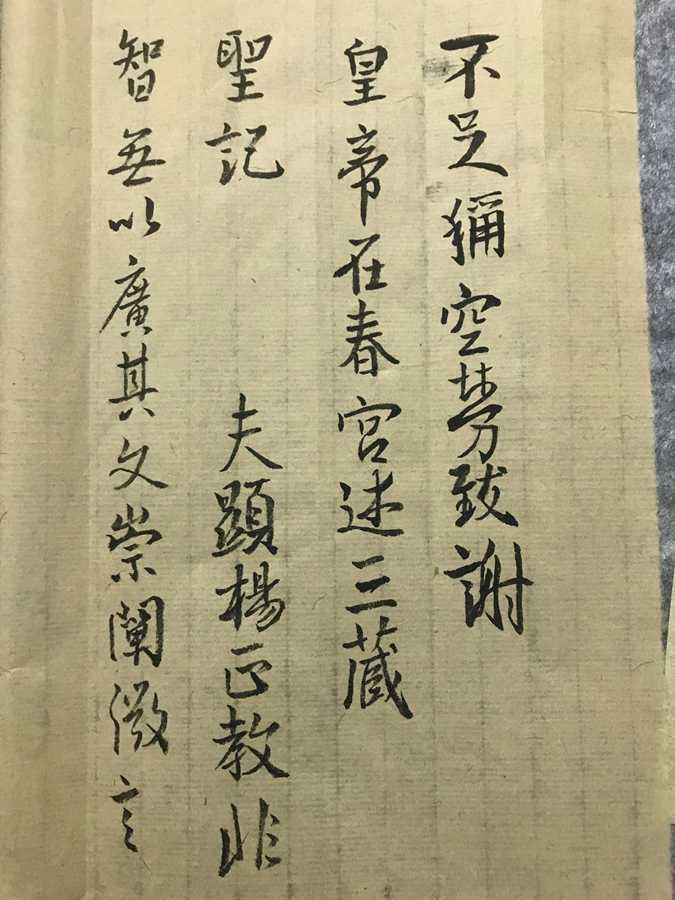 不足稱空勞致謝
皇帝在春宮述三藏
聖記 夫顯楊正教非
智無以廣其文崇闡微言